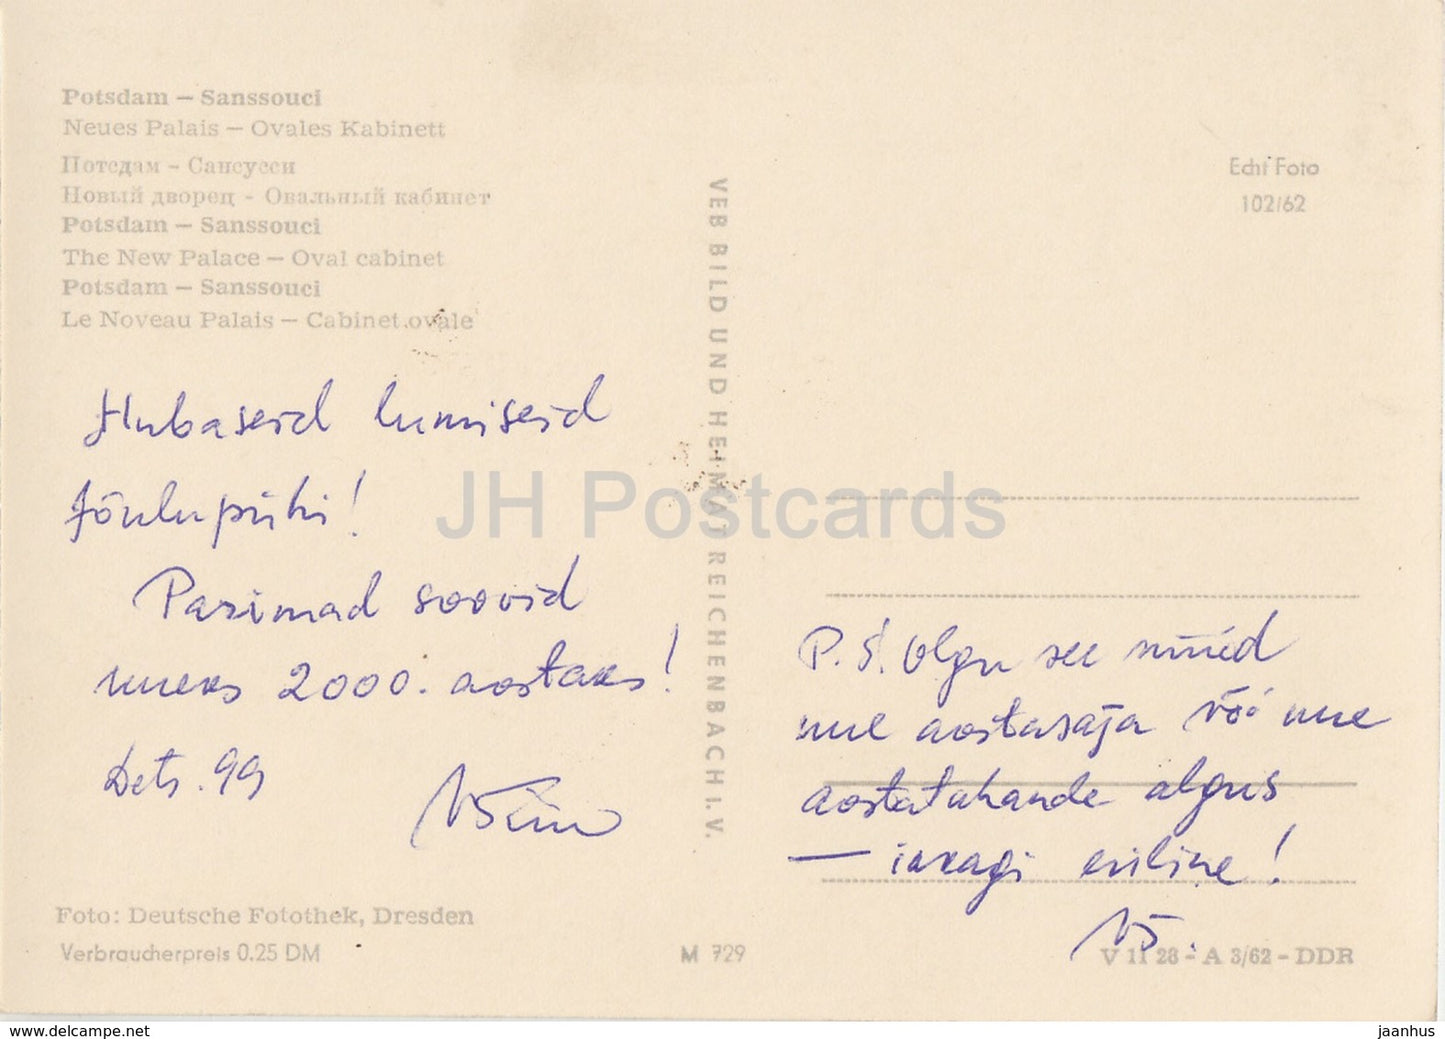 Potsdam — Sanssouci
Neues Palais — Ovales Kabinett
Потсдам - Сансусси
Новый дворец - Овальный кабинет
Potsdam — Sanssouci
The New Palace — Oval cabinet
Potsdam — Sanssouci
Le Noveau Palais — Cabinet ovale
Hubaseid lumiseid
jõulupühi!
Parimad soovid
uueks 2000. aastaks!
Dets. 99
Foto: Deutsche Fotothek, Dresden
Verbraucherpreis 0.25 DM
VEB BILD UND HEIMAT REICHENBACH I. V.
M 729
Echt Foto
102/62
P.S. Olgu see nüüd
uue aastasaja või uue
aastatuhande algus
— ikkagi eriline!
VS.
V 11 28 - A 3/62 - DDR
JH Postcards
www.delcampe.net
jaanhus